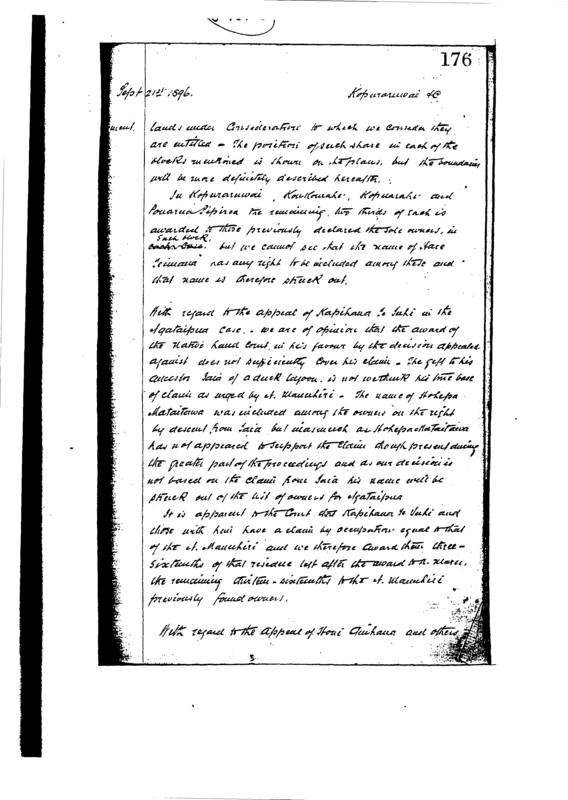 176
Sept 21st 1896. Kopuraruwai &c
ment. lands under Consideration to which we consider they
are entitled – The position of such share in each of the
blocks mentioned is shown on the plans, but the boundaries
will be more definitely described hereafter.
In Kopuraruwai, Koukourahi, Kopuarahi and
Pouarua Pipiroa the remaining two thirds of each is
awarded to those previously declared the sole owners, in
each block
each case. but we cannot see that the name of Hare
Teimana has any right to be included among these and
that name is therefore struck out.
With regard to the appeal of Kapihana Te Tuhi in the
Ngataipua case. we are of opinion that the award of
the Native Land Court in his favour by the decision appealed
against does not sufficiently cover his claim – The gift to his
Ancestor Taia of a duck lagoon. is not we think his true base
of claim as urged by N. Maunhiri – The name of Hohepa
Mataitawa was included among the owners on the right
by descent from Taia but inasmuch as Hohepa Mataitawa
has not appeared to support the claim though present during
the greater part of the proceedings and as our decision is
not based on the claim from Taia his name will be
struck out of the list of owners for Ngataipua
It is apparent to the Court that Kapihana Te Tuhi and
those with him have a claim by occupation equal to that
of the N. and we therefore award them three-
sixteenths of that residue left after the award to N.
the remaining thirteen-sixteenths to the N.
previously found owners.
With regard to the Appeal of Honi and others
3